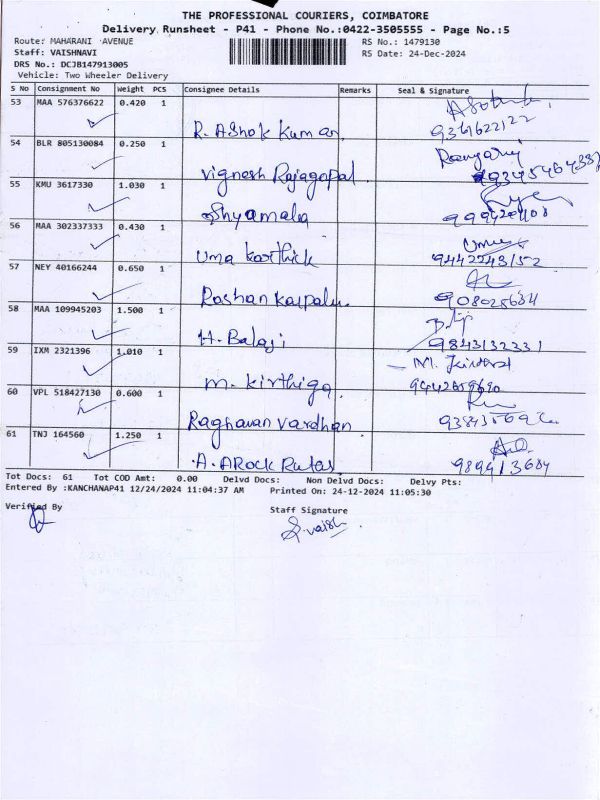 THE PROFESSIONAL COURIERS, COIMBATORE
Delivery Runsheet - P41 - Phone No.:0422-3505555 - Page No.:5
Route: MAHARANI AVENUE
RS No.: 1479130
Staff: VAISHNAVI
RS Date: 24-Dec-2024
DRS No.: DCJB147913005
Vehicle: Two Wheeler Delivery
S No Consignment No Weight PCS Consignee Details Remarks Seal & Signature
53 MAA 576376622 0.420 1
R. Ashok Kuman 9361622122
54 BLR 805130084 0.250 1
Vignesh Rajagopal
55 KMU 3617330 1.030 1
Shyamala
56 MAA 302337333 0.430 1
Uma Karthick 9442243152
57 NEY 40166244 0.650 1
Roshan 908025684
58 MAA 109945203 1.500 1
H. Balaji 9843132331
59 IXM 2321396 1.010 1
M. Kirthiga
60 VPL 518427130 0.600 1
Raghavan Vardhan
61 TNJ 164560 1.250 1
A. AROCK
Tot Docs: 61 Tot COD Amt: 0.00 Delvd Docs: Non Delvd Docs: Delvy Pts:
Entered By :KANCHANAP41 12/24/2024 11:04:37 AM Printed On: 24-12-2024 11:05:30
Verified By
Staff Signature
S.vaish